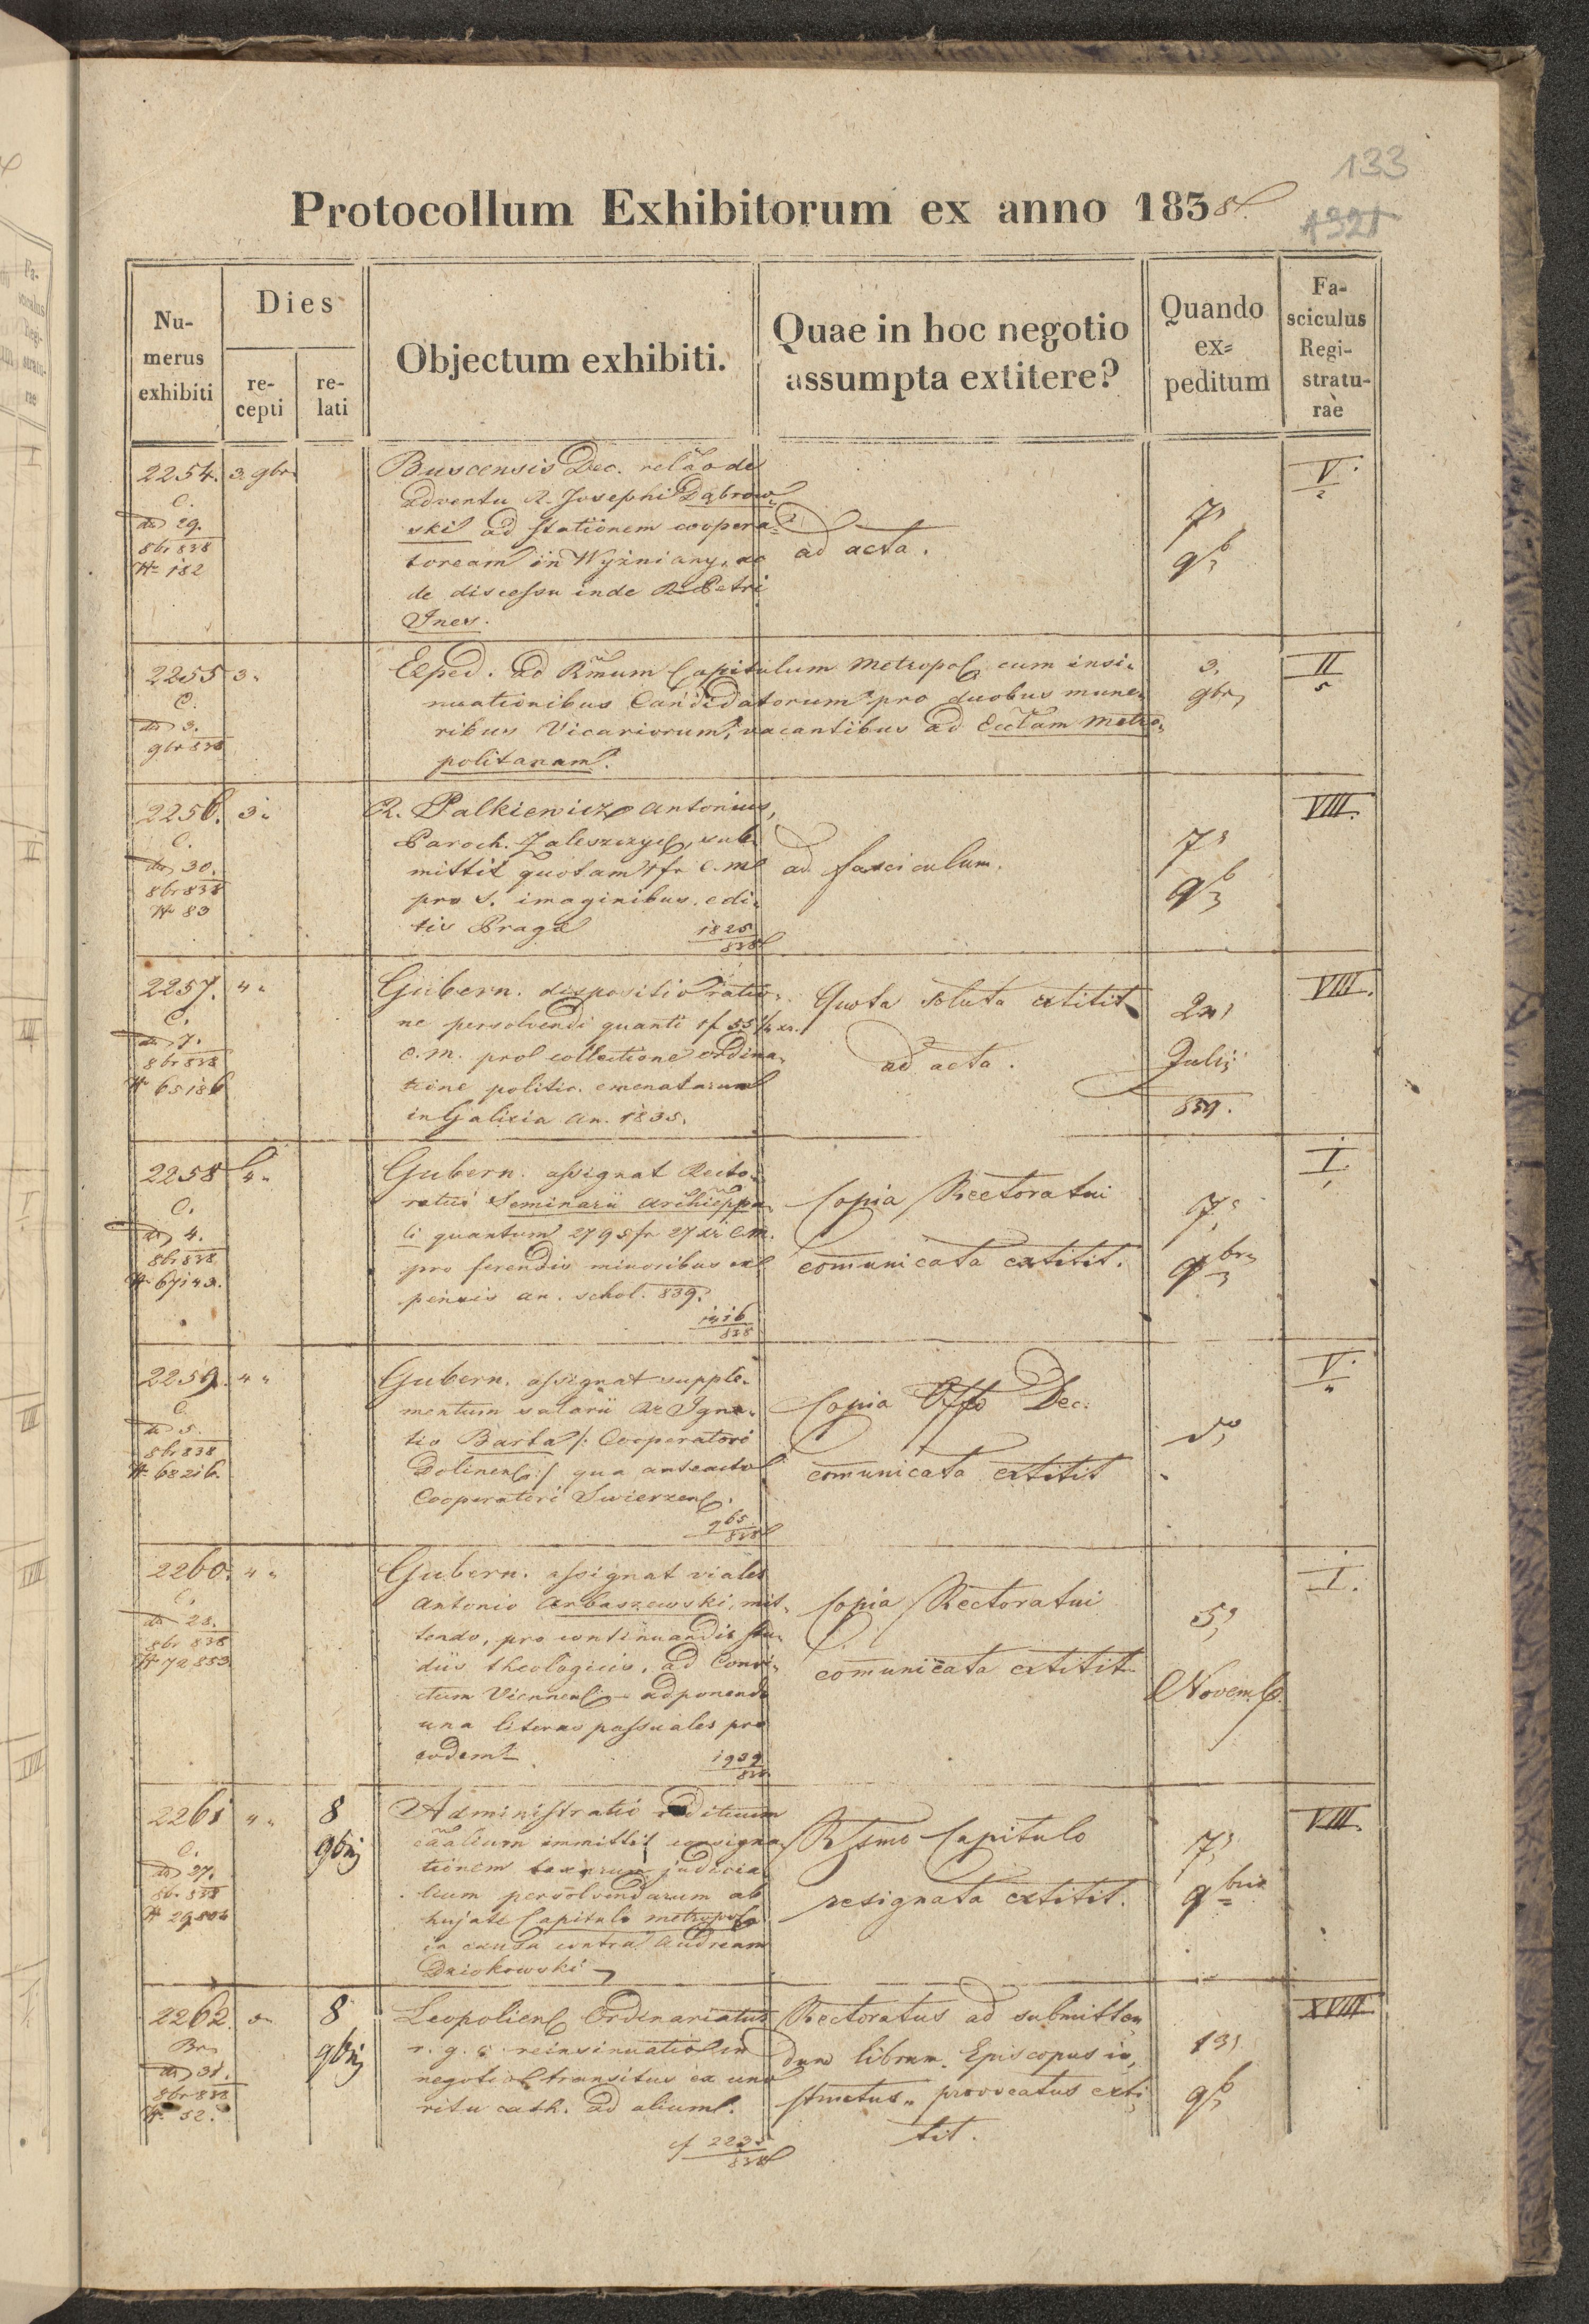 133
1321
Protocollum Exhibitorum ex anno 1838.
Nu-
merus
exhibiti
Dies
re-
cepti
re-
lati
Objectum exhibiti.
Quae in hoc negotio
assumpta extitere?
Quando
ex=
peditum
Fa-
sciculus
Regi-
stratu-
rae
2254. 3. 9br
C.
dto 29.
8br 838
N 182
Buscensis Dec. relao de
adventu R. Josephi Dąbrow-
ski ad stationem coopera-
toream in Wyżniany, ac
de discessu inde R. Petri
Ines.
ad acta.
7
9b
V.
2255 3.
C.
dto 3.
9br 838
Exped. ad Rmum Capitulum Metropol. cum insi-
nuationibus Candidatorum pro duobus mune-
ribus Vicariorum, vacantibus ad Ecclam Metro-
politanam.
3.
9br
II
5
2256. 3.
C.
dto 30.
8br 838
N 83
R. Palkiewicz Antonius,
Paroch. Zaleszczyc, sub-
mittit quotam 1 fr C.M.
pro S. imaginibus edi-
tis Praga
1825
838
ad fasciculum.
7
9b
VIII.
2257. 4.
C.
dto 7.
8br 838
N 65186
Gubern. dispositio ratio-
ne persolvendi quanti 1f 55 1/4 xr.
C.M. pro collectione ordina-
tione politic. emenatarum
in Galicia an. 1835.
Quota soluta extitit
ad acta.
2n
Julii
839.
VIII.
2258 4.
C.
dto 4.
8br 838
N 67143.
Gubern. assignat Recto-
ratui Seminarii Archieppa-
li quantum 2795 fr 27 xr C.M.
pro ferendis minoribus ex-
pensis an. schol. 839.
1416
838
Copia Rectoratui
comunicata extitit.
7
9br
I.
2259. 4.
C.
dto 5.
8br 838
N 68216.
Gubern. assignat supple-
mentum salarii R. Igna-
tio Barta /: Cooperatori
Dolinens :/ qua anteacto
Cooperatori Swierzens.
965
838
Copia Offo Dec.
comunicata extitit
V.
4
2260. 4.
C.
dto 28.
8br 838
N 72853.
Gubern. assignat viales
Antonio Arbaszewski, mit-
tendo, pro continuandis stu-
diis theologicis, ad Convi-
ctum Viennens – adponendo
una literas passuales pro
eodem
1939
838
Copia Rectoratui
comunicata extitit
5
Novemb.
I.
2261 4. 8
9bris
C.
dto 27.
8br 838
N 29804
Administratio redituum
caalium immittit consigna-
tionem taxarum judicia-
lium persolvendarum ab
hujate Capitulo metropol.
in causa contra Andream
Dziokowski
Rssmo Capitulo
resignata extitit.
7
9bris
VIII.
2262. 5. 8
9bris
Br
dto 31.
8br 838
N 52.
Leopoliens Ordinariatus
r. g. c. reinsinuatio in
negotio transitus ex uno
ritu cath. ad alium.
cf 2235
838
Rectoratus ad submitten-
dum librum. Episcopus in-
structus" provocatus exti-
tit.
13
9b
XVIII